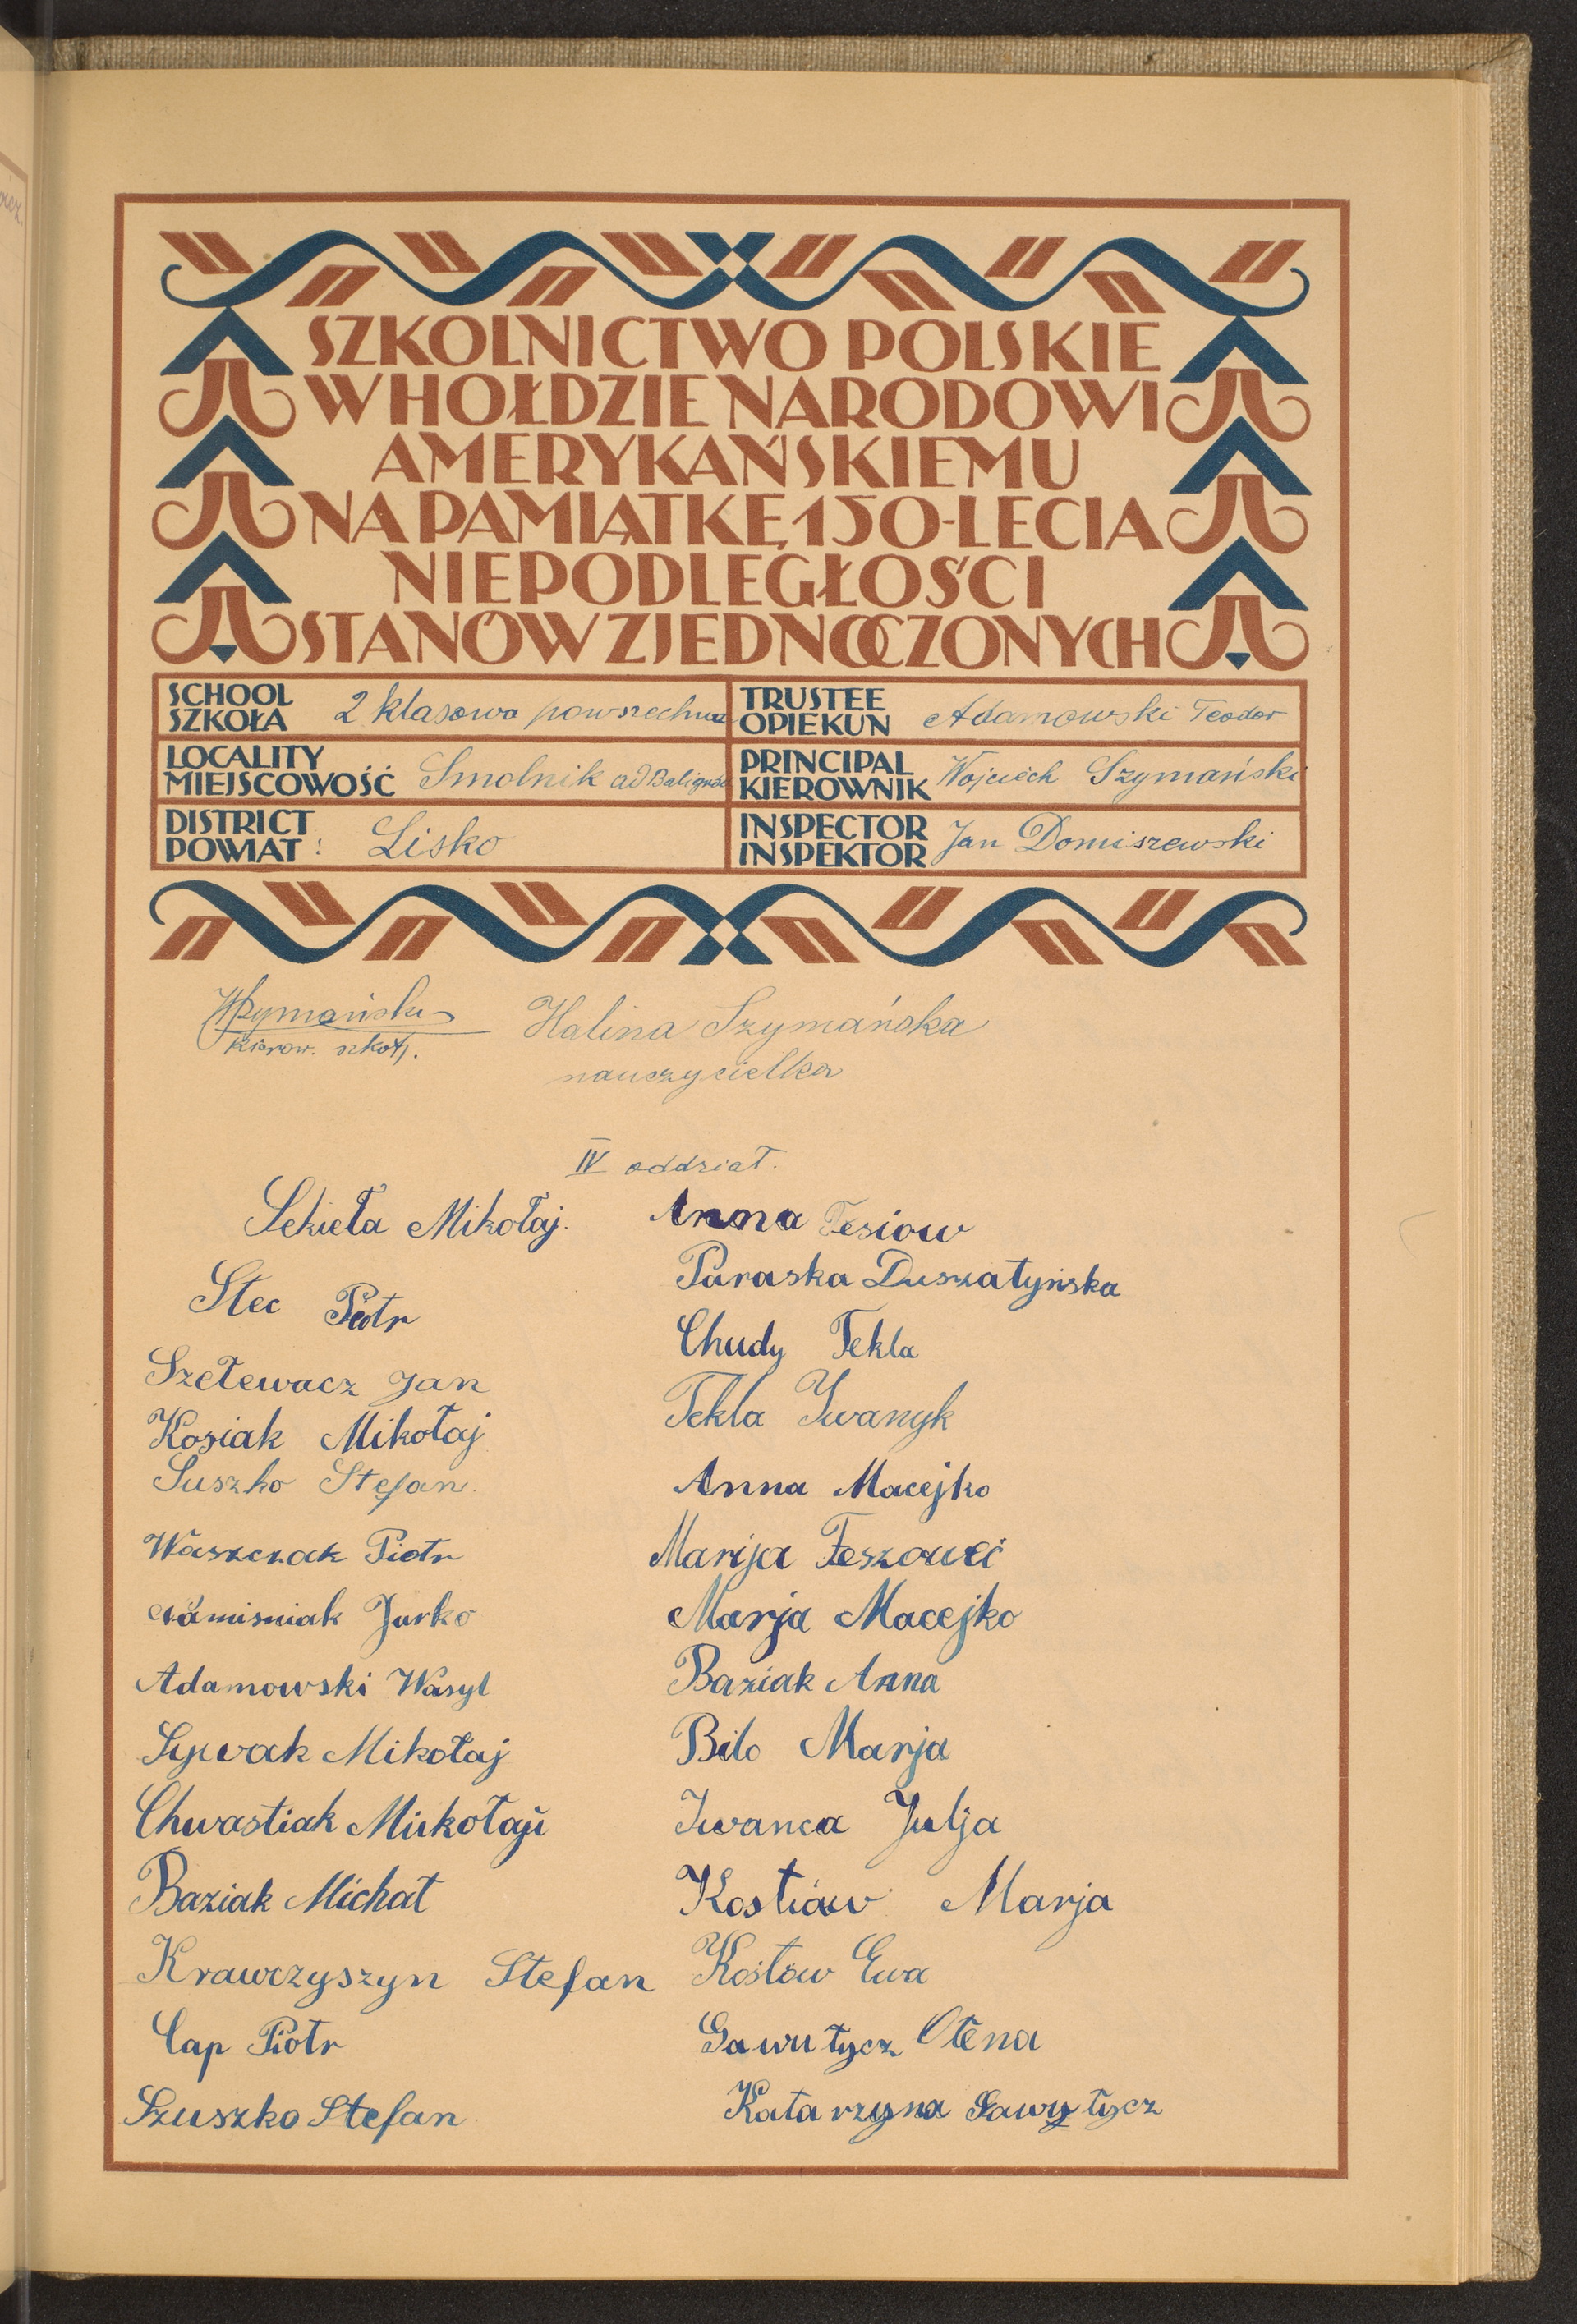 SZKOLNICTWO POLSKIE
W HOŁDZIE NARODOWI
AMERYKAŃSKIEMU
NA PAMIĄTKĘ 150-LECIA
NIEPODLEGŁOŚCI
STANÓW ZJEDNOCZONYCH
SCHOOL
SZKOŁA 2 klasowa powszechna
TRUSTEE
OPIEKUN Adamowski Teodor
LOCALITY
MIEJSCOWOŚĆ Smolnik ad Baligród
PRINCIPAL
KIEROWNIK Wojciech Szymański
DISTRICT
POWIAT: Lisko
INSPECTOR
INSPEKTOR Jan Domiszewski
WSzymański Halina Szymańska
kierow. szkoły. nauczycielka
IV oddział.
Sekieła Mikołaj.
Stec Piotr
Szełewacz Jan
Kosiak Mikołaj
Suszko Stefan.
Waszczak Piotr
Jurko
Adamowski Wasyl
Sywak Mikołaj
Chwastiak Mikołaj
Baziak Michał
Krawczyszyn Stefan
Cap Piotr
Szuszko Stefan
Anna Fesiow
Paraska Duszatyńska
Chudy Tekla
Tekla Iwanyk
Anna Macejko
Marija
Marja Macejko
Baziak Anna
Bilo Marja
Iwanca Julja
Kostiów Marja
Kostow Ewa
Gawułycz Ołena
Katarzyna Gawryłycz